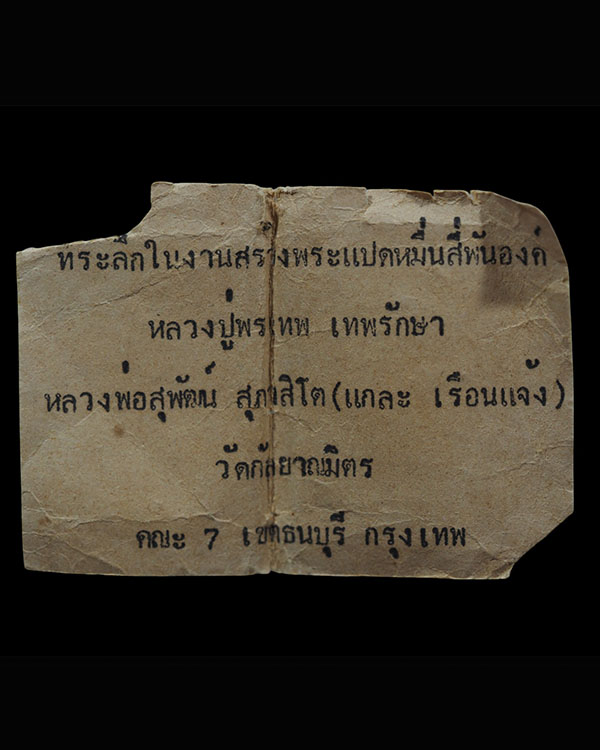 ทระลึกในงานสรางพระแปดหมื่นสี่พันองค์
หลวงปู่พรเทพ เทพรักษา
หลวงพ่อสุพัฒน์ สุภาสิโต(แกละ เรือนแจ้ง)
วัดกัลยาณมิตร
คณะ 7 เขตธนบุรี กรุงเทพ